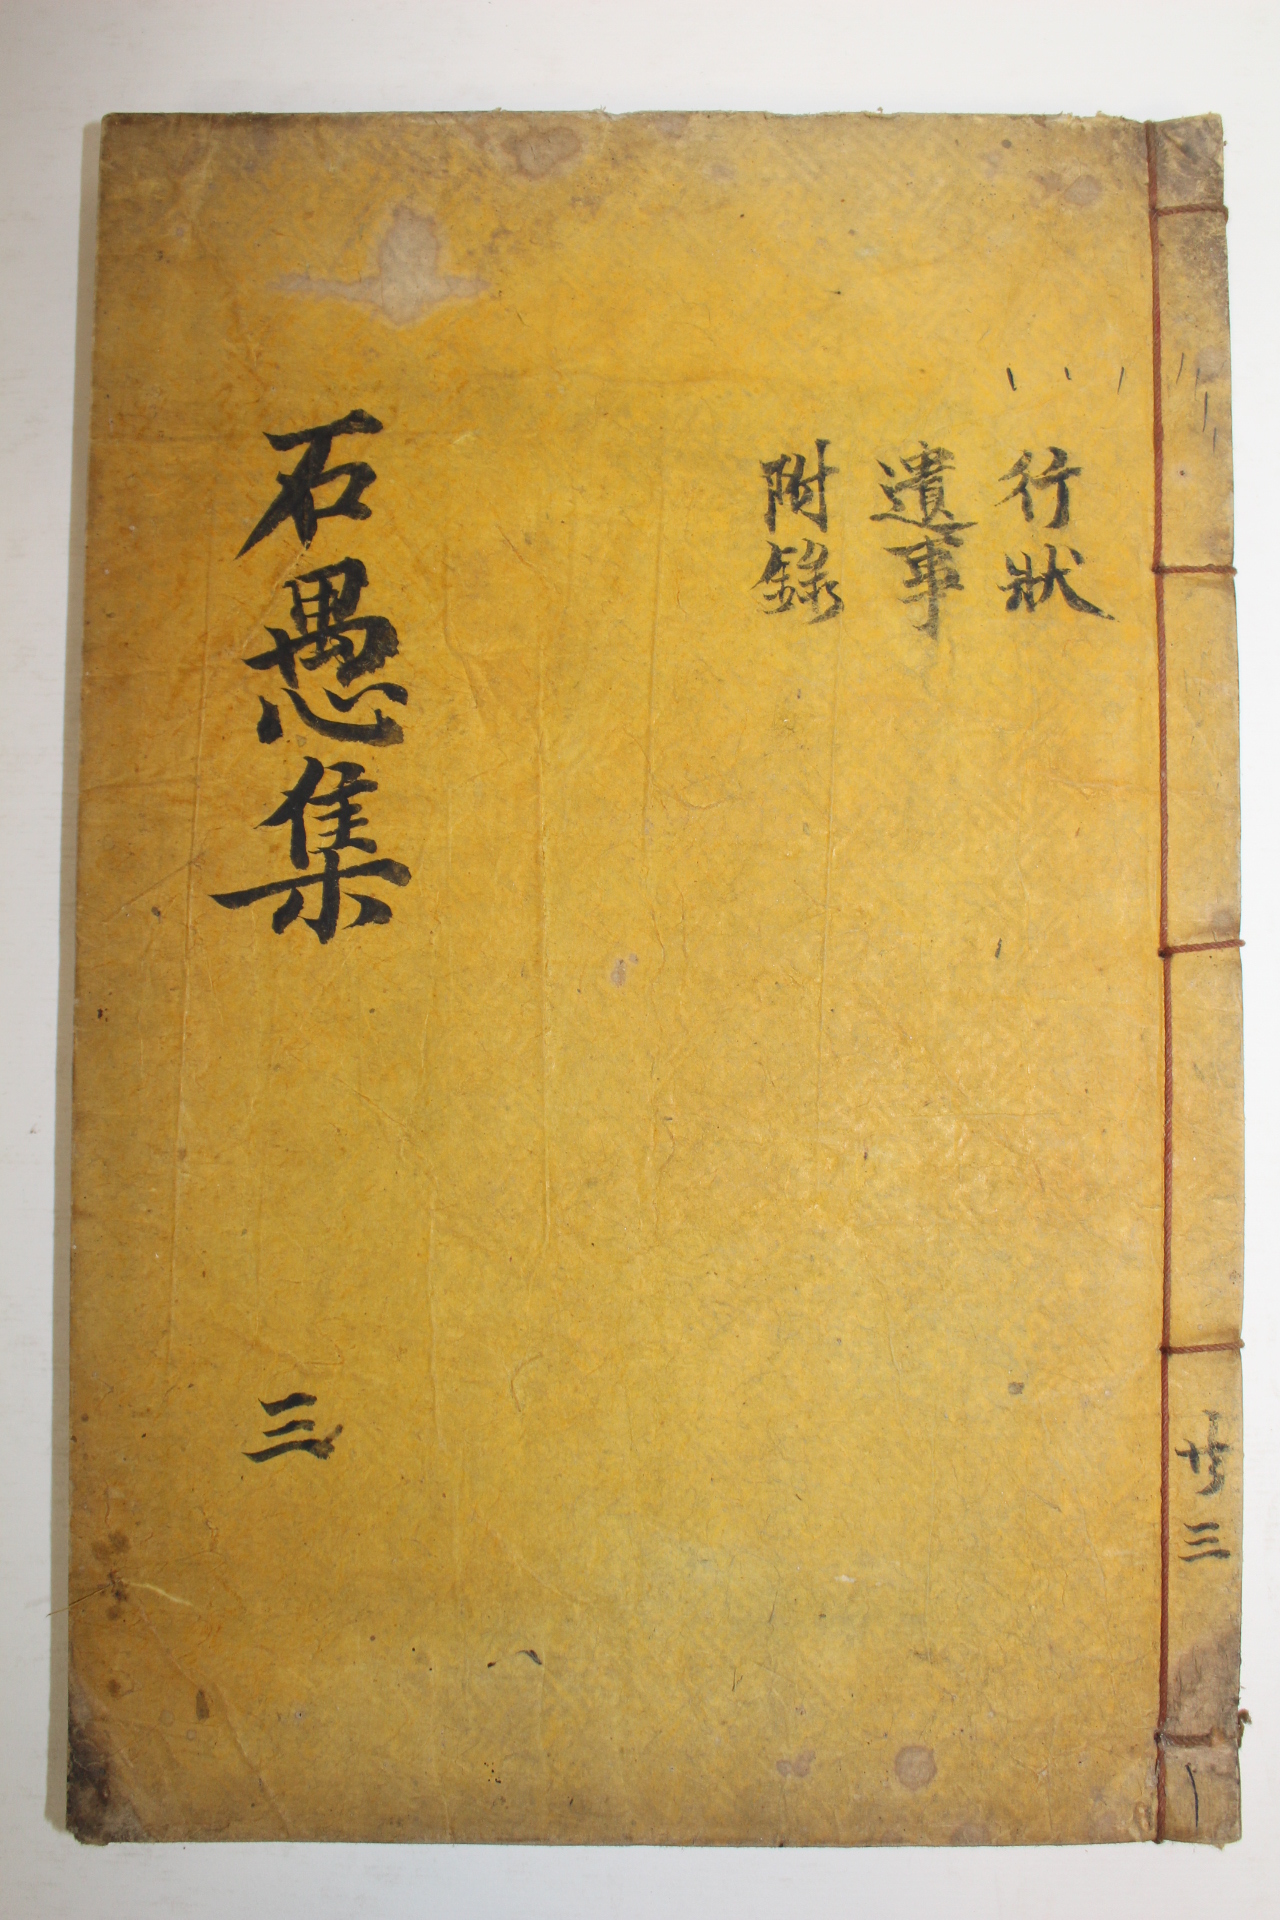 行狀
遺事
附錄
石愚集
三
共三